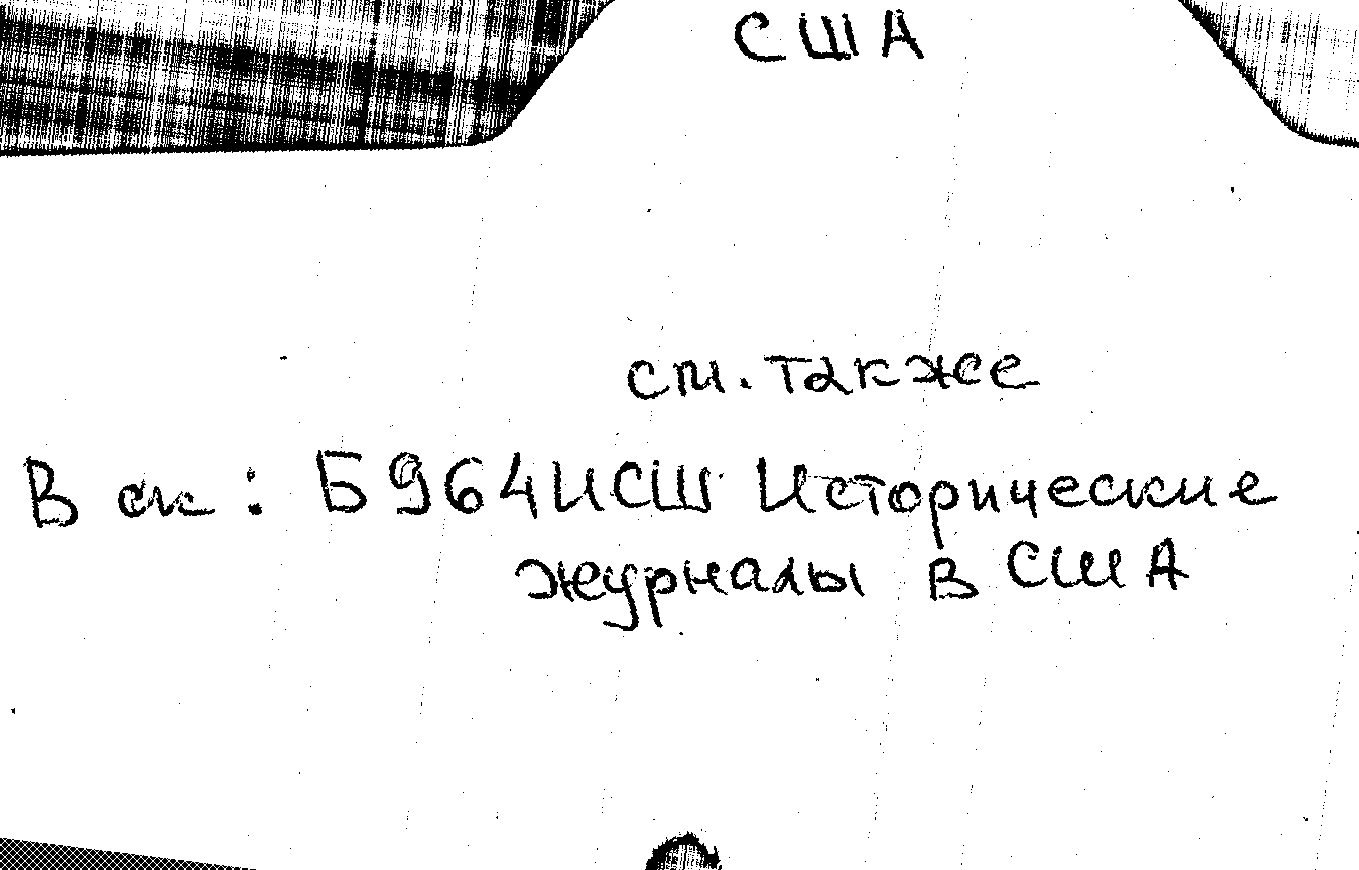 США
см. также
В ск: Б964ИСШ Исторические
журналы в США